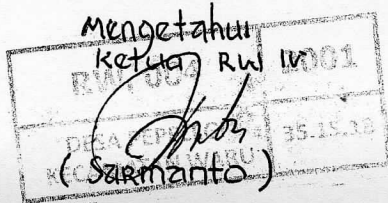 Mengetahui
Ketua RW IV
RW. 004 2001
DESA 35.15.18
KEC WARU
(Sarmanto)